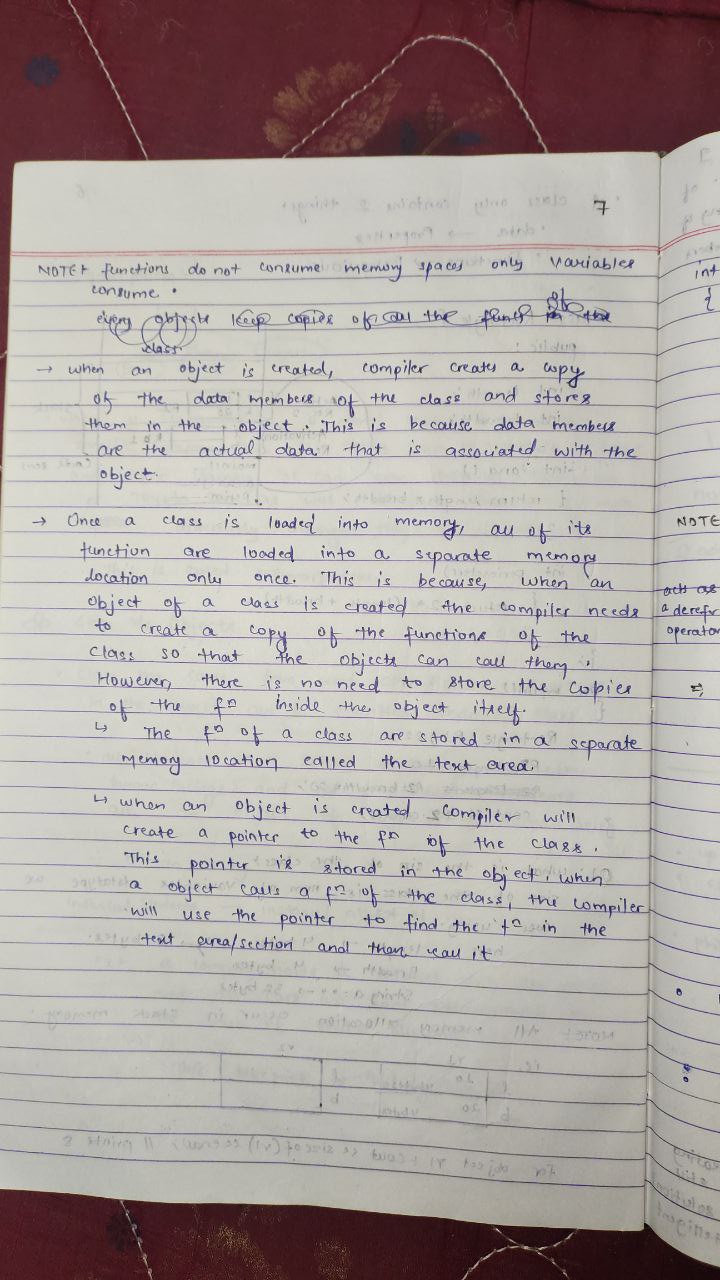 7
NOTE → functions do not consume memory spaces only variables
consume.
every objects keep copies of all the funct in the
class
→ when an object is created, compiler creates a copy
of the data members of the class and stores
them in the object. This is because data members
are the actual data that is associated with the
object.
→ Once a class is loaded into memory, all of its
function are loaded into a separate memory
location only once. This is because, when an
object of a class is created the compiler needs
to create a copy of the functions of the
class so that the objects can call them.
However, there is no need to store the copies
of the fⁿ inside the object itself.
↳ The fⁿ of a class are stored in a separate
memory location called the text area.
↳ when an object is created compiler will
create a pointer to the fⁿ of the class.
This pointer is stored in the object. when
a object calls a fⁿ of the class, the compiler
will use the pointer to find the fⁿ in the
text area/section and then call it
int
{
NOTE
acts as
a derefr
operator
⇒